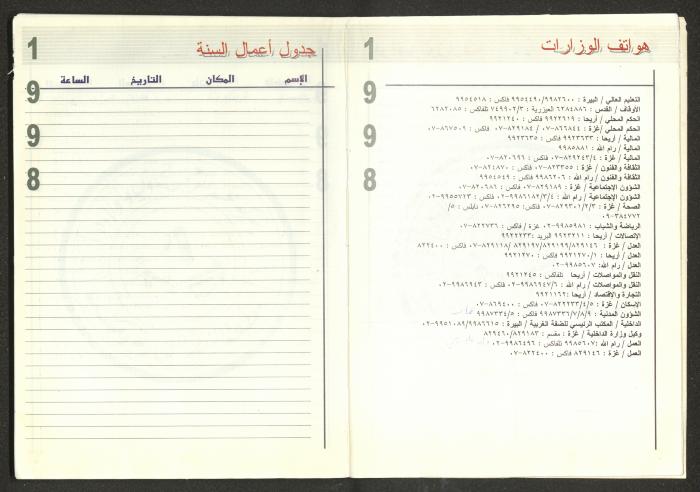 هواتف الوزارات
1
9
9
8
التعليم العالي / البيرة : ٩٩٨٢٦٠٠/٩٩٥٤٤٩٠ فاكس : ٩٩٥٤٥١٨
الأوقاف / القدس : ٦٢٨٤٨٨٦ العيزرية : ٧٤٩٩٠٢/٣ تلفاكس : ٦٢٨٢٠٨٥
الحكم المحلي / أريحا : ٩٩٢٢٦١٩ فاكس : ٩٩٢١٢٤٠
الحكم المحلي /غزة : ٨٦٦٨٤٤-٠٧ / ٨٢٩١٨٤-٠٧ فاكس : ٨٦٧٥٠٩-٠٧
المالية / أريحا : ٩٩٢٣٦٣٣ فاكس : ٩٩٢٣٦٣٥
المالية / رام الله : ٩٩٨٥٨٨١
المالية / غزة : ٨٢٩٢٤٣/٤-٠٧ فاكس : ٨٢٠٦٩٦-٠٧
الثقافة والفنون / غزة : ٨٢٣٣٥٥-٠٧ فاكس : ٨٢٤٨٧٠-٠٧
الثقافة والفنون / رام الله : ٩٩٨٦٢٠٦ فاكس : ٩٩٥٤٥٤٩
الشؤون الإجتماعية / غزة : ٨٢٩١٨٩-٠٧ فاكس : ٨٢٠٦٨٦-٠٧
الشؤون الإجتماعية / رام الله : ٩٩٨٦١٨٢/٣/٤-٠٢ فاكس : ٩٩٥٥٧٢٣-٠٢
الصحة / غزة : ٨٢٩٣٠١/٢/٣-٠٧ فاكس: ٨٢٦٢٩٥-٠٧ نابلس : ٥/
٣٨٤٧٧٢-٠٩
الرياضة والشباب : ٩٩٨٥٩٨١-٠٢ غزة / فاكس : ٨٢٢٧٣٦-٠٧
الإتصالات / أريحا : ٩٩٢٣٢١١ البريد :٩٩٢٢٢٣٣
العدل / غزة : ٨٢٩١٤٦/ ٨٢٩١٩٩/ ٨٢٩١٩٧/ ٨٢٩١١٨-٠٧ فاكس : ٨٢٢٤٠٠
العدل / أريحا : ٩٩٢١٢٧٠/١ فاكس : ٩٩٢١٢٧٠
العدل / رام الله: ٩٩٨٥٦٠٧-٠٢
النقل والمواصلات / أريحا تلفاكس : ٩٩٢١٢٤٥
النقل والمواصلات / رام الله : ٩٩٨٦٩٤٧/٦-٠٢ فاكس : ٩٩٨٦٩٤٣-٠٢
التجارة والاقتصاد / أريحا :٩٩٢١١٦٢
الإسكان / غزة : ٨٢٢٢٣٣/٤/٥-٠٧ فاكس : ٨٦٩٤٠٠-٠٧
الشؤون المدنية : ٩٩٨٧٣٣٦/٧/٨/٩ فاكس : ٩٩٨٧٣٣٤/٥
الداخلية / المكتب الرئيسي للضفة الغربية / البيرة : ٩٩٨٦٦١٥/٩٩٥١٠٨٩-٠٢
وكيل وزارة الداخلية / غزة : مقسم : ٨٢٩١٨٣/ ٨٢٩٤٦٠
العمل / رام الله :٩٩٨٥٦٠٧ تلفاكس : ٩٩٨٦٤٩٦-٠٢
العمل / غزة : ٨٢٩١٤٦ فاكس : ٨٢٢٤٠٠-٠٧
جدول أعمال السنة
1
9
9
8
الإسم المكان التاريخ الساعة